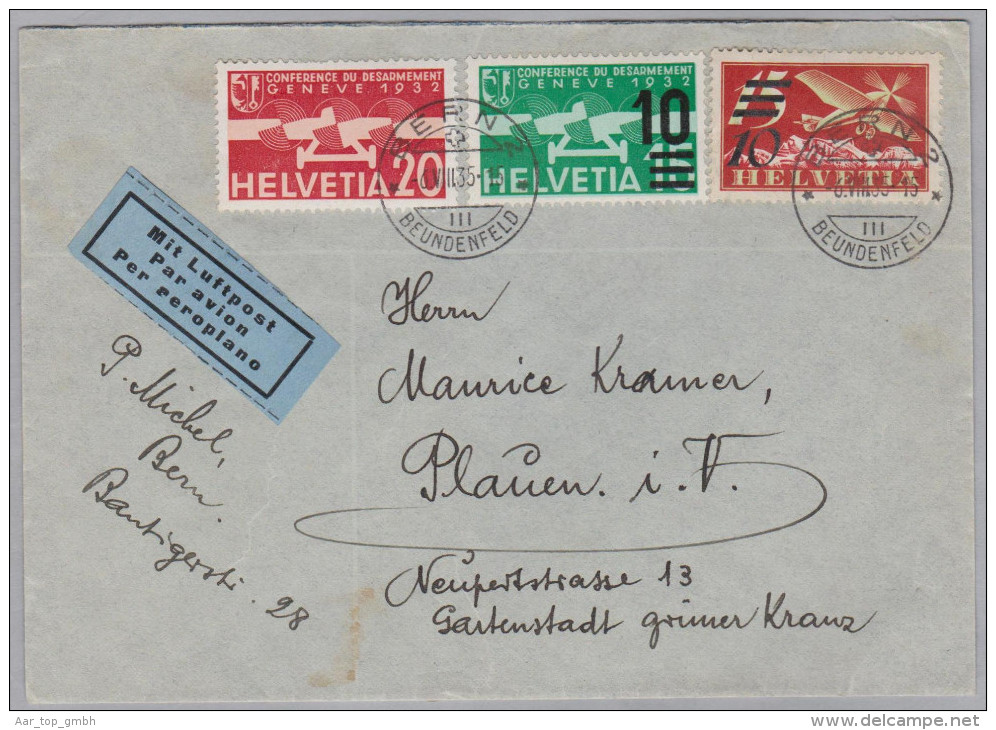 CONFERENCE DU DESARMEMENT
GENEVE 1932
HELVETIA 20
CONFERENCE DU DESARMEMENT
GENEVE 1932
10
HELVETIA
15
10
HELVETIA
BERN 2
6.VIII.35-15
III
BEUNDENFELD
BERN 2
6.VIII.35-15
III
BEUNDENFELD
Mit Luftpost
Par avion
Per aeroplano
P. Michel,
Bern.
Bantigerstr. 28
Herrn
Maurice Kramer,
Plauen. i. V.
Neupertstrasse 13
Gartenstadt grüner Kranz
Aar_top_gmbh
www.delcampe.net